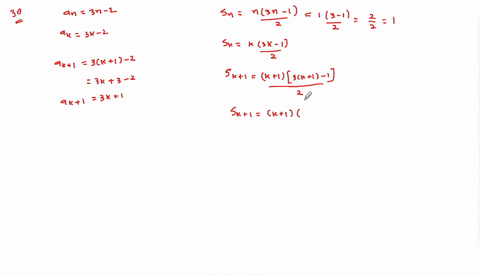 30
an = 3n-2
ak = 3k-2
ak+1 = 3(k+1)-2
= 3k+3-2
ak+1 = 3k+1
Sn = n(3n-1)/2 = 1(3-1)/2 = 2/2 = 1
Sk = k(3k-1)/2
Sk+1 = (k+1)[3(k+1)-1]/2
Sk+1 = (k+1)(